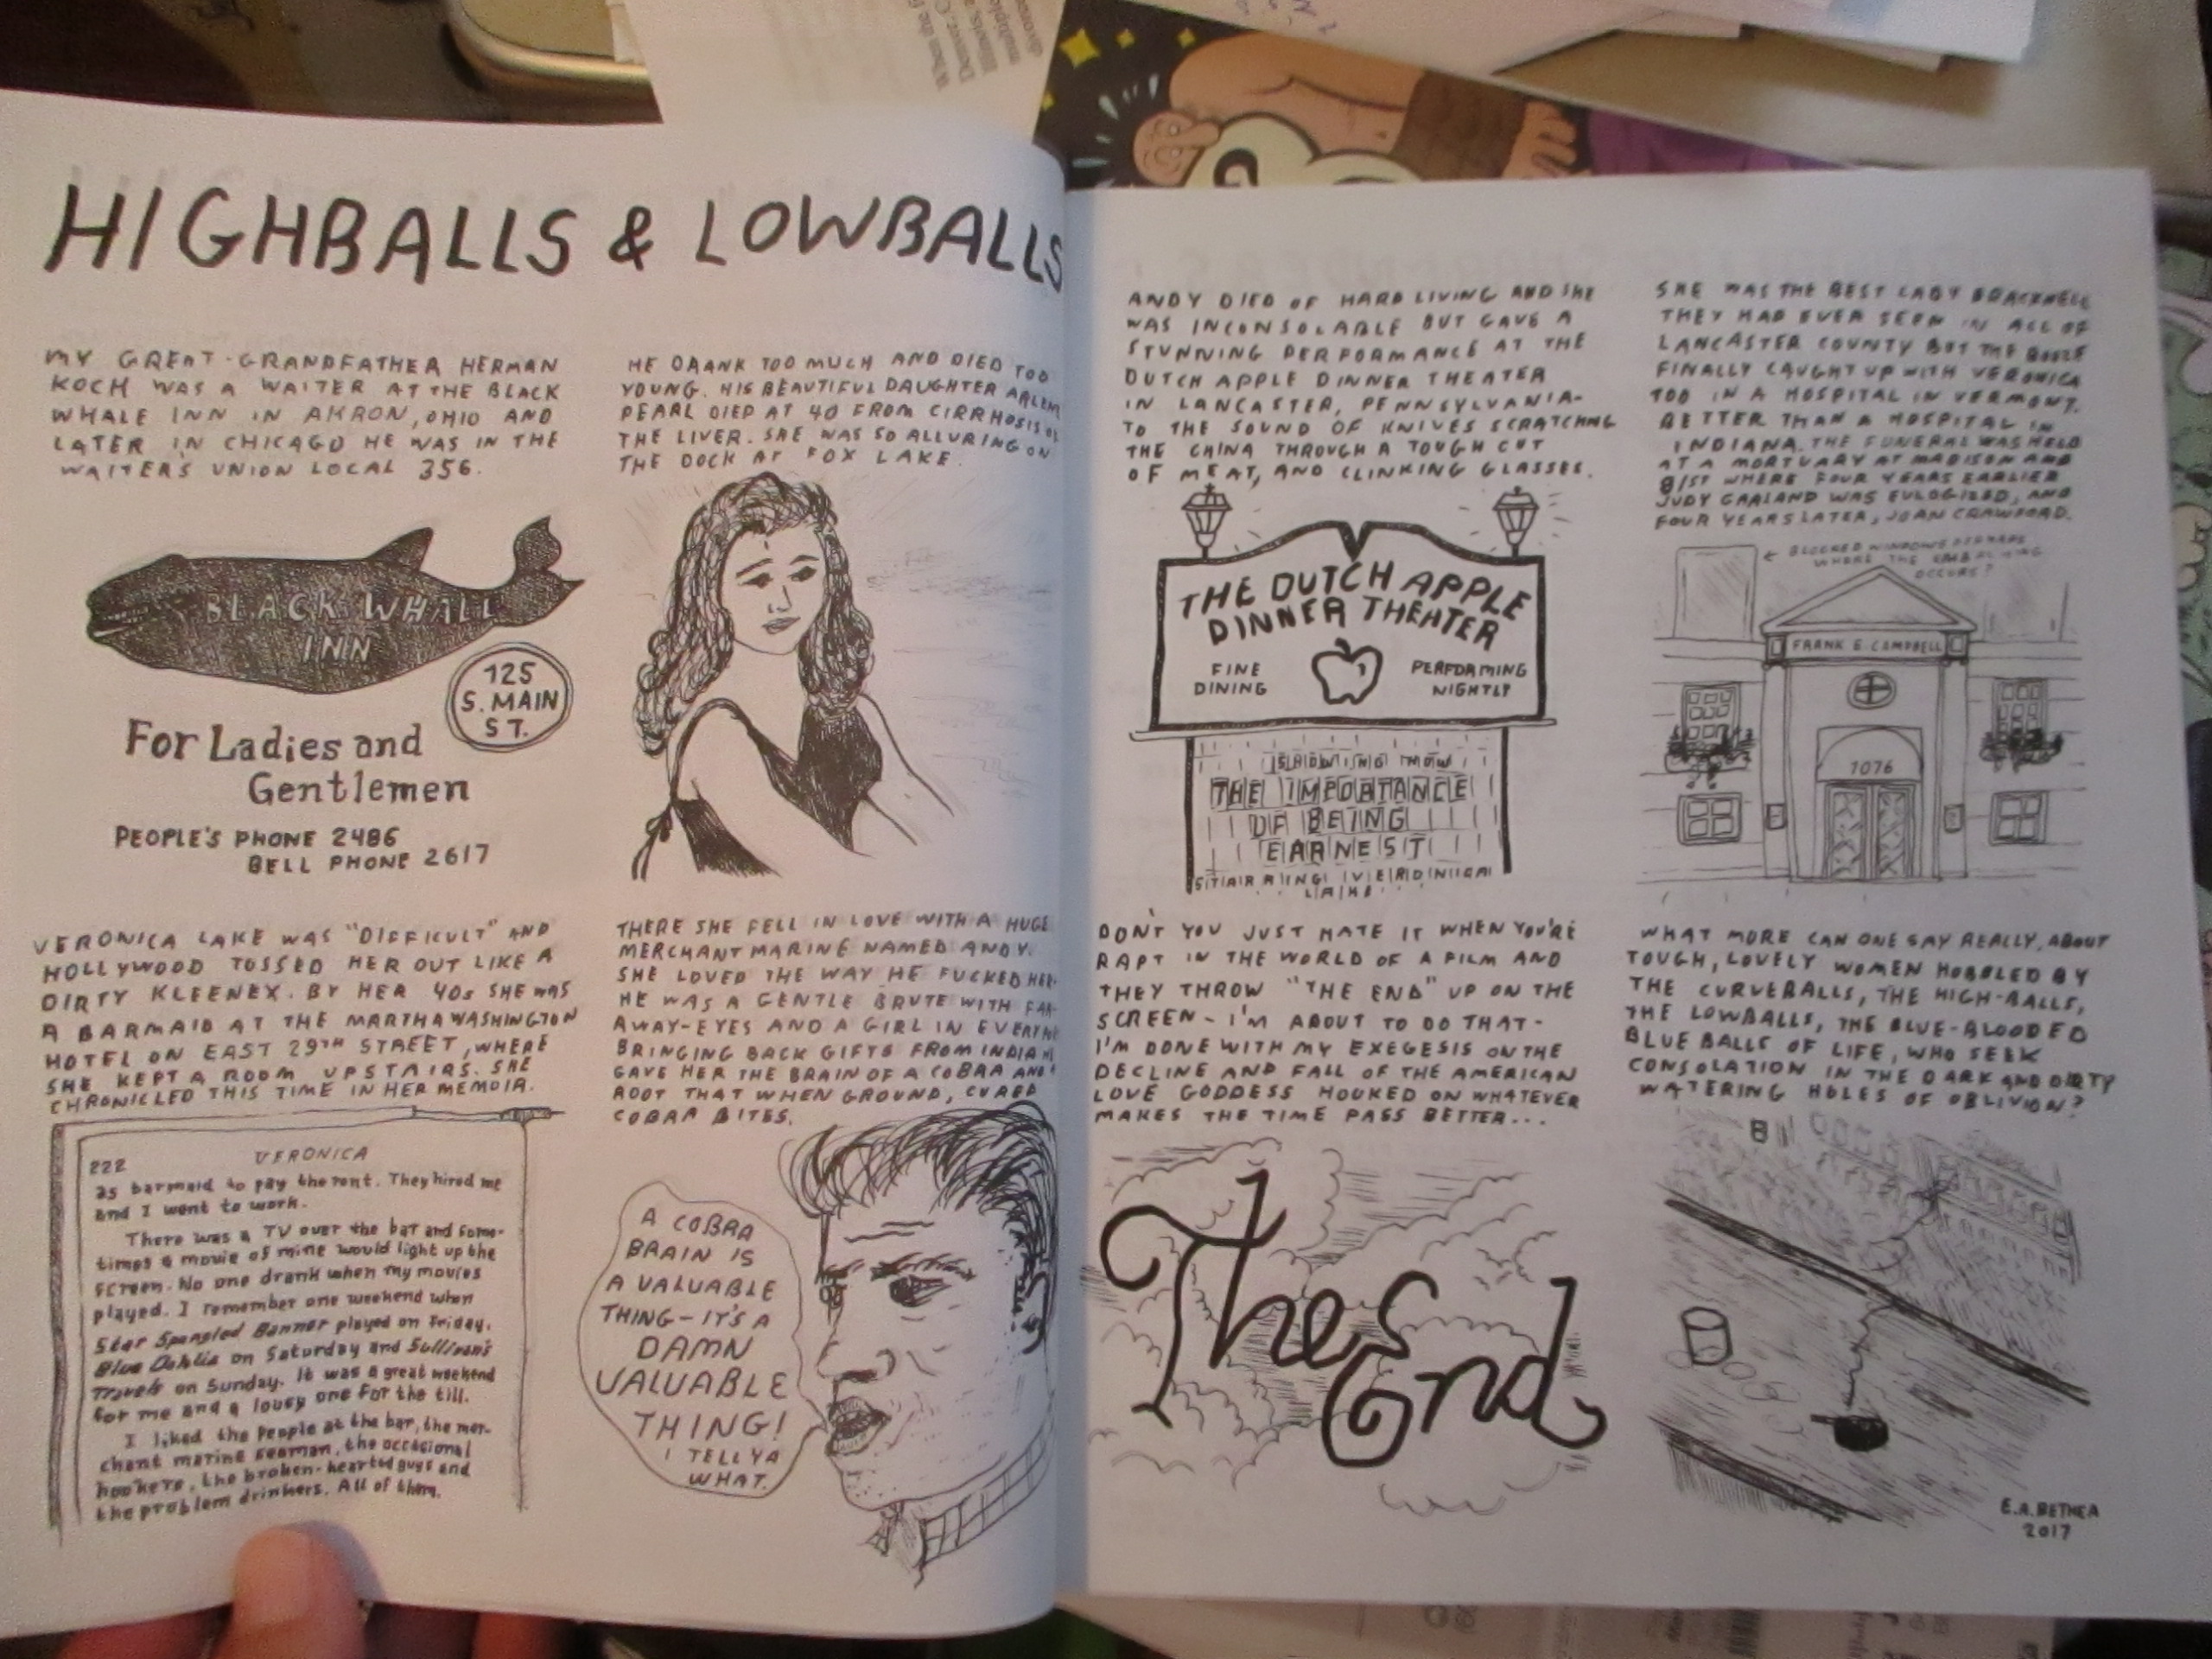 HIGHBALLS & LOWBALLS
MY GREAT-GRANDFATHER HERMAN
KOCH WAS A WAITER AT THE BLACK
WHALE INN IN AKRON, OHIO AND
LATER IN CHICAGO HE WAS IN THE
WAITER'S UNION LOCAL 356.
BLACK WHALE
INN
125
S. MAIN
ST.
For Ladies and
Gentlemen
PEOPLE'S PHONE 2486
BELL PHONE 2617
HE DRANK TOO MUCH AND DIED TOO
YOUNG. HIS BEAUTIFUL DAUGHTER
PEARL DIED AT 40 FROM CIRRHOSIS OF
THE LIVER. SHE WAS SO ALLURING ON
THE DOCK AT FOX LAKE.
VERONICA LAKE WAS "DIFFICULT" AND
HOLLYWOOD TOSSED HER OUT LIKE A
DIRTY KLEENEX. BY HER 40s SHE WAS
A BARMAID AT THE MARTHA WASHINGTON
HOTEL ON EAST 29TH STREET, WHERE
SHE KEPT A ROOM UPSTAIRS. SHE
CHRONICLED THIS TIME IN HER MEMOIR.
222 VERONICA
as barmaid to pay the rent. They hired me
and I went to work.
There was a TV over the bar and some-
times a movie of mine would light up the
screen. No one drank when my movies
played. I remember one weekend when
Star Spangled Banner played on Friday,
Blue Dahlia on Saturday and Sullivan's
Travels on Sunday. It was a great weekend
for me and a lousy one for the till.
I liked the people at the bar, the mer-
chant marine seaman, the occasional
hookers, the broken-hearted guys and
the problem drinkers. All of them.
THERE SHE FELL IN LOVE WITH A HUGE
MERCHANT MARINE NAMED ANDY.
SHE LOVED THE WAY HE FUCKED HER.
HE WAS A GENTLE BRUTE WITH FAR-
AWAY-EYES AND A GIRL IN
BRINGING BACK GIFTS FROM
GAVE HER THE BRAIN OF A COBRA AND
ROOT THAT WHEN GROUND, CURED
COBRA BITES.
A COBRA
BRAIN IS
A VALUABLE
THING-IT'S A
DAMN
VALUABLE
THING!
I TELL YA
WHAT.
ANDY DIED OF HARD LIVING AND SHE
WAS INCONSOLABLE BUT GAVE A
STUNNING PERFORMANCE AT THE
DUTCH APPLE DINNER THEATER
IN LANCASTER, PENNSYLVANIA-
TO THE SOUND OF KNIVES SCRATCHING
THE CHINA THROUGH A TOUGH CUT
OF MEAT, AND CLINKING GLASSES.
THE DUTCH APPLE
DINNER THEATER
FINE
DINING
PERFORMING
NIGHTLY
SHOWING NOW
THE IMPORTANCE
OF BEING
EARNEST
STARRING VERONICA
LAKE
SHE WAS THE BEST LADY BRACKNELL
THEY HAD EVER SEEN IN ALL OF
LANCASTER COUNTY BUT THE BOOZE
FINALLY CAUGHT UP WITH VERONICA
TOO IN A HOSPITAL IN VERMONT.
BETTER THAN A HOSPITAL IN
INDIANA. THE FUNERAL WAS HELD
AT A MORTUARY AT MADISON AND
81ST WHERE FOUR YEARS EARLIER
JUDY GARLAND WAS EULOGIZED, AND
FOUR YEARS LATER, JOAN CRAWFORD.
BLOCKED WINDOWS PERHAPS
WHERE THE EMBALMING
OCCURS?
FRANK E CAMPBELL
1076
DON'T YOU JUST HATE IT WHEN YOU'RE
RAPT IN THE WORLD OF A FILM AND
THEY THROW "THE END" UP ON THE
SCREEN-I'M ABOUT TO DO THAT-
I'M DONE WITH MY EXEGESIS ON THE
DECLINE AND FALL OF THE AMERICAN
LOVE GODDESS HOOKED ON WHATEVER
MAKES THE TIME PASS BETTER...
The End
WHAT MORE CAN ONE SAY REALLY, ABOUT
TOUGH, LOVELY WOMEN HOBBLED BY
THE CURVEBALLS, THE HIGH-BALLS,
THE LOWBALLS, THE BLUE-BLOODED
BLUE BALLS OF LIFE, WHO SEEK
CONSOLATION IN THE DARK AND DIRTY
WATERING HOLES OF OBLIVION?
E.A. BETHEA
2017